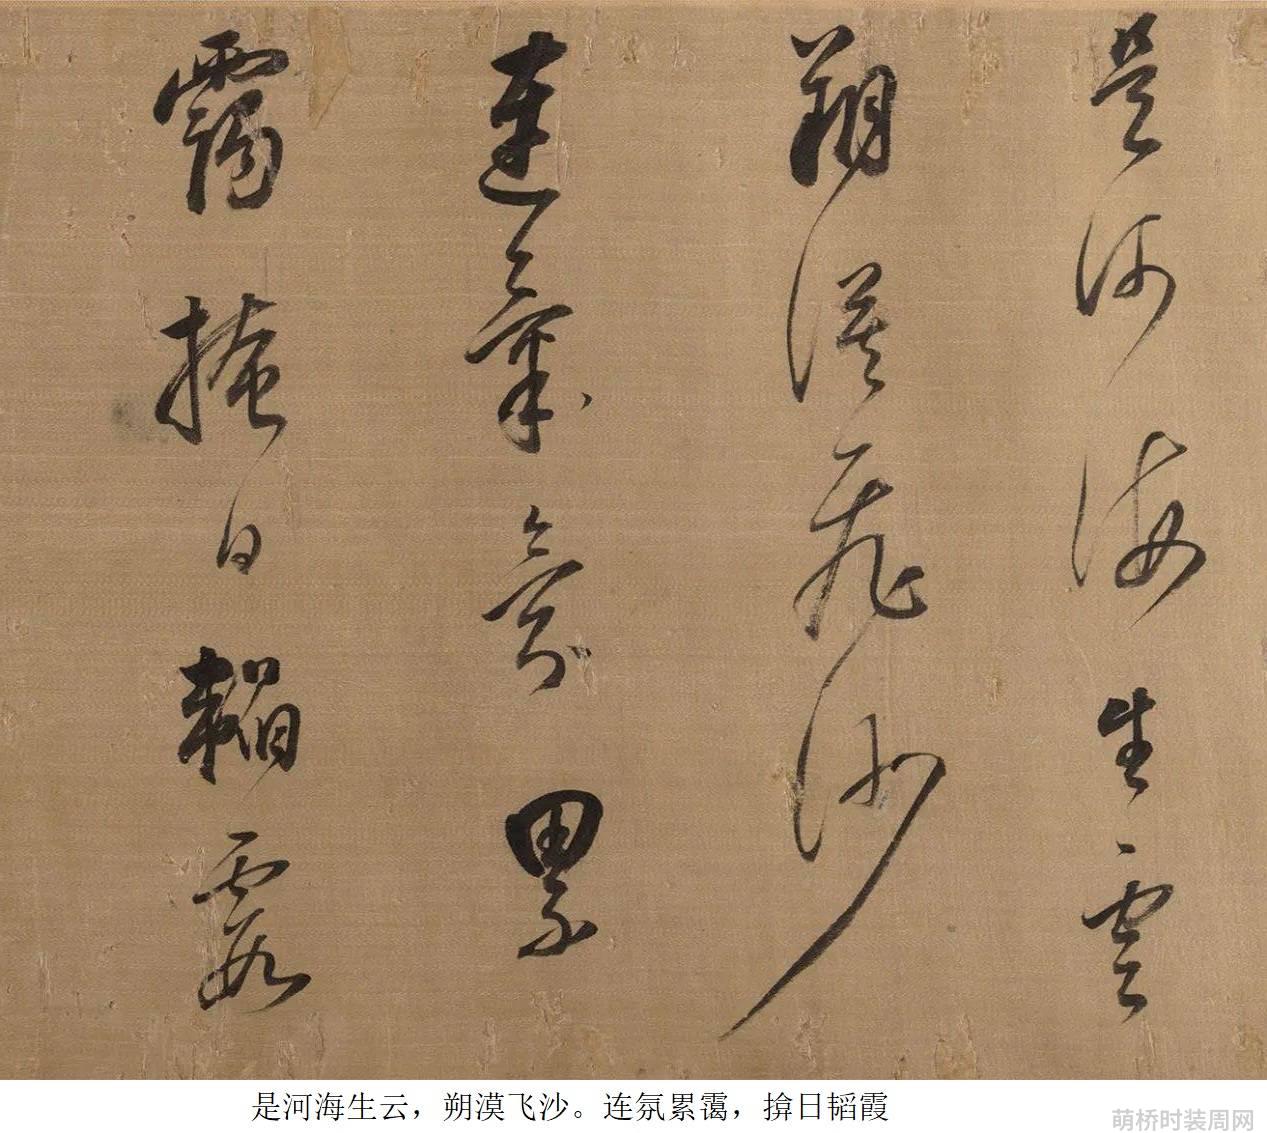 是河海生雲
朔漠飛沙
連氣氛累
靄掩日韜霞
是河海生云，朔漠飞沙。连氛累霭，揜日韬霞
萌桥时装周网